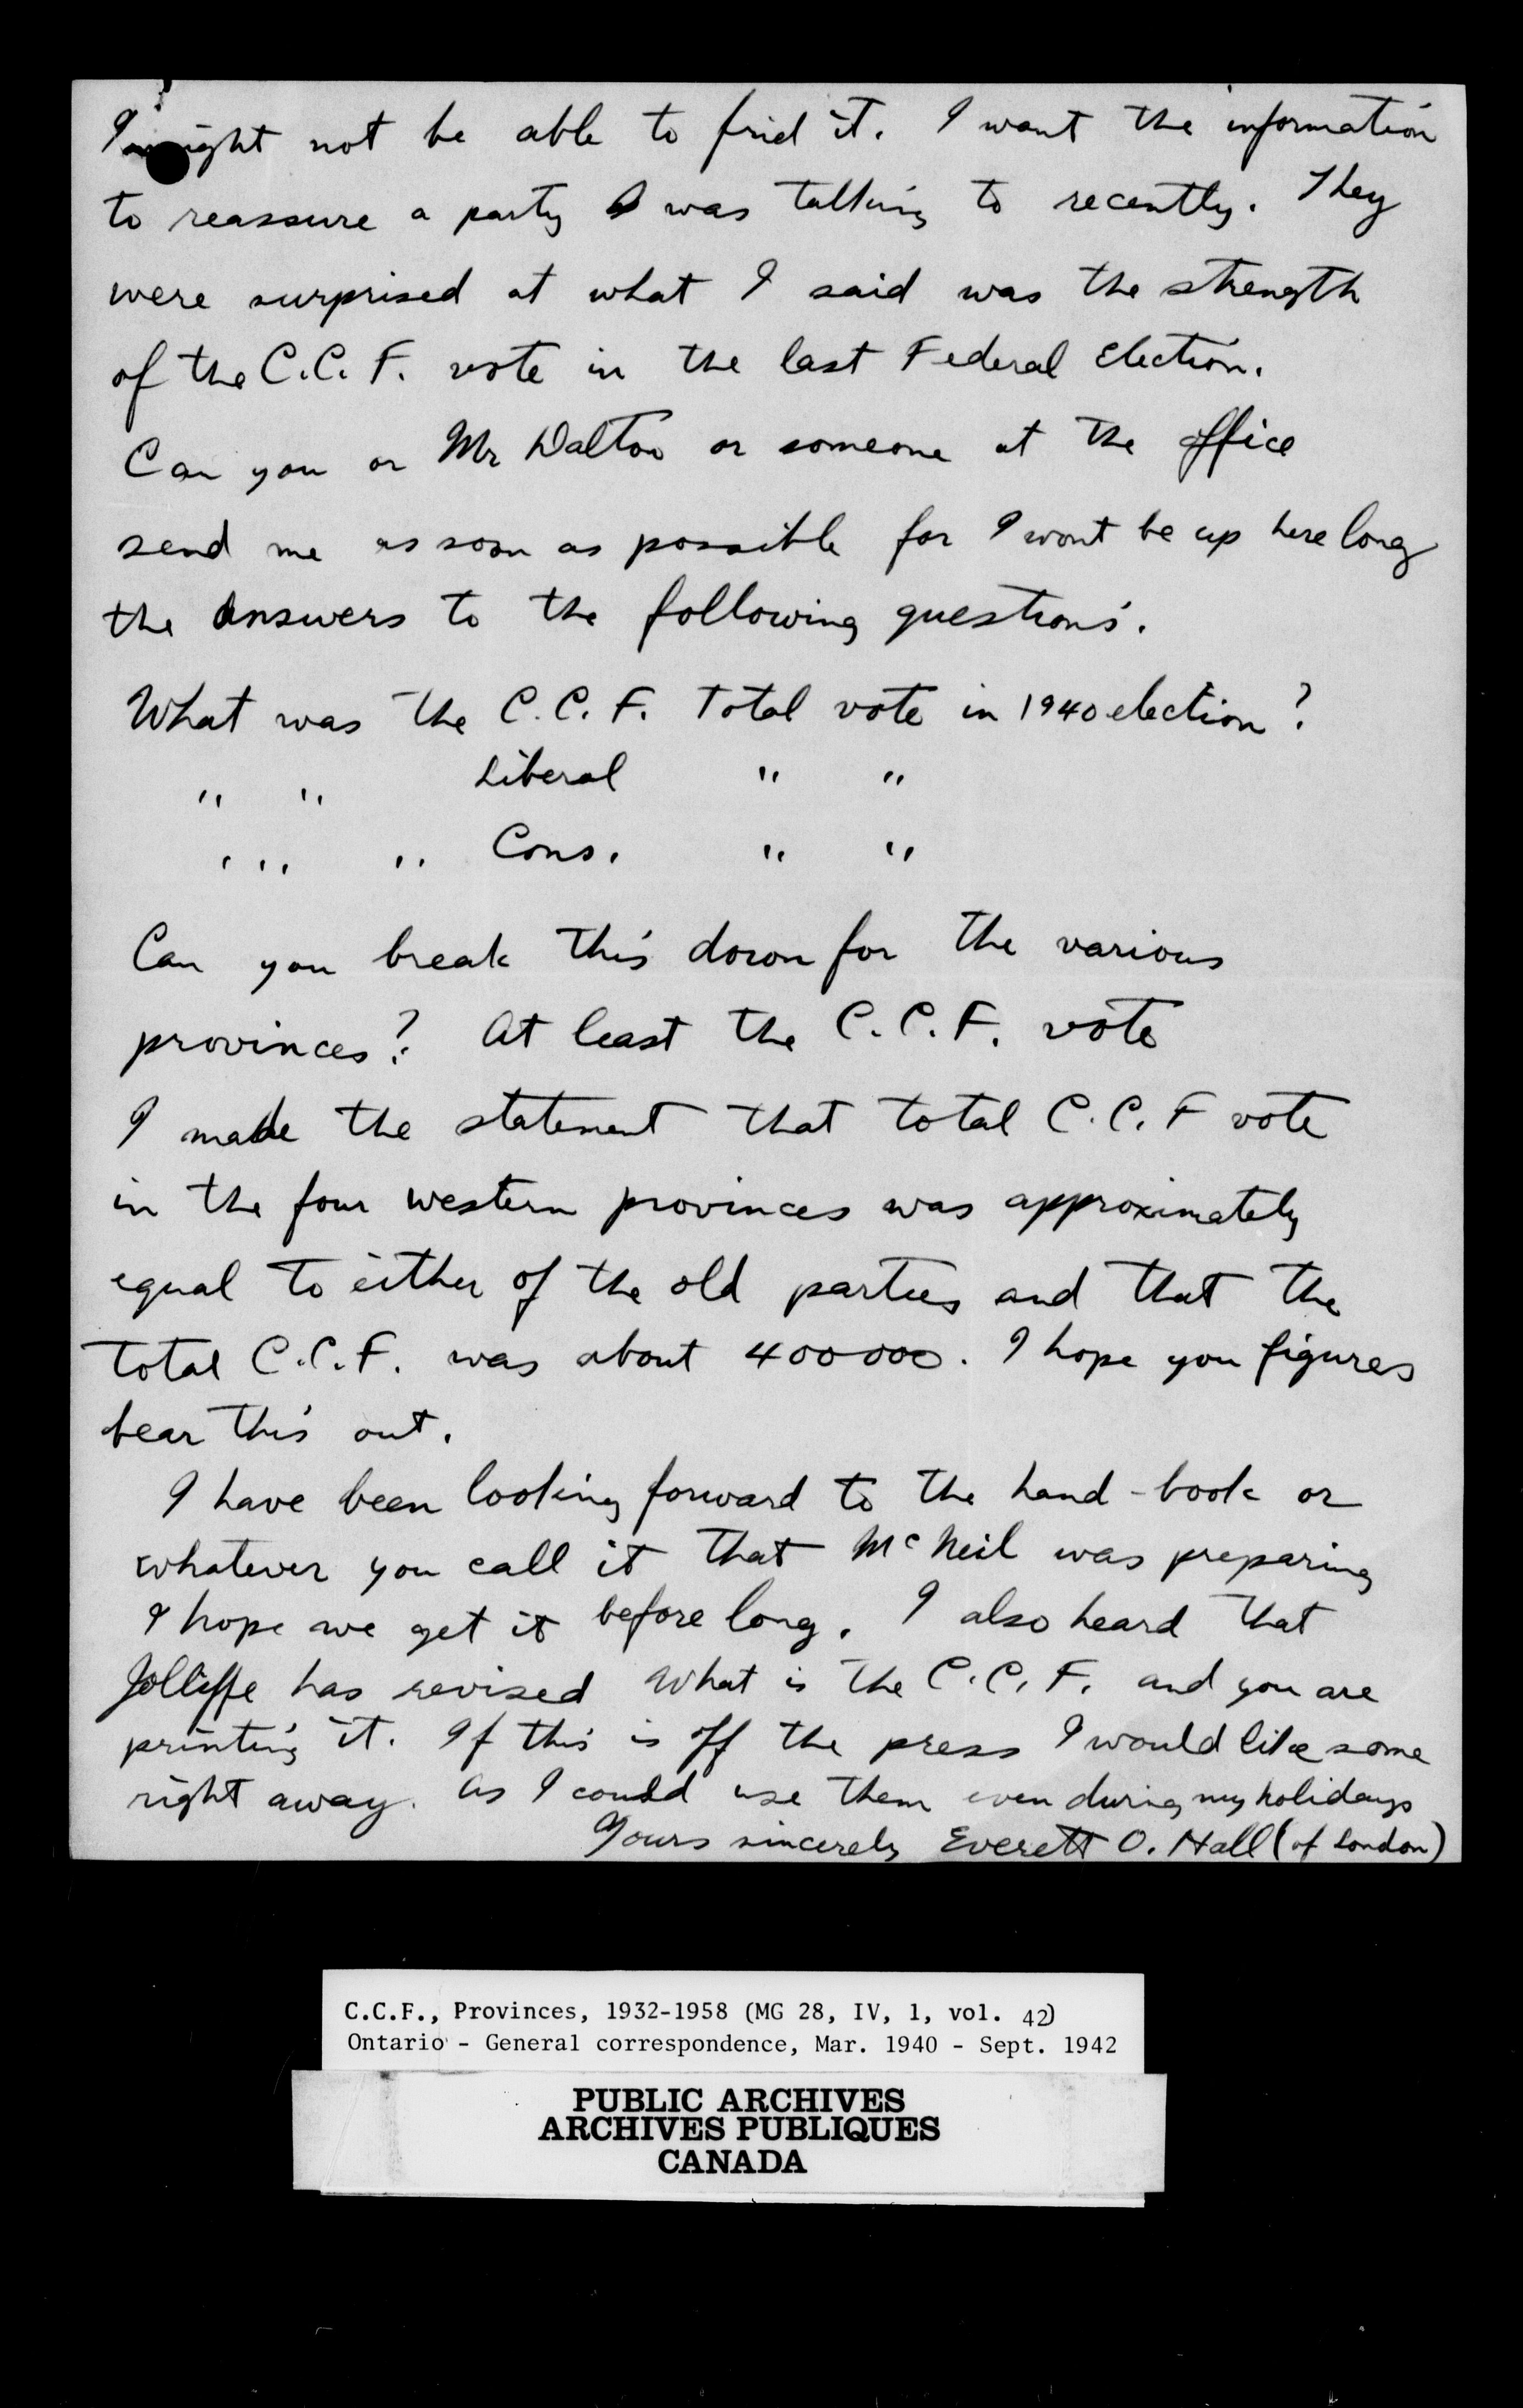 I might not be able to find it. I want the information
to reassure a party I was talking to recently. They
were surprised at what I said was the strength
of the C.C.F. vote in the last Federal Election.
Can you or Mr Dalton or someone at the office
send me as soon as possible for I wont be up here long
the answers to the following questions.
What was the C.C.F. Total vote in 1940 election?
" " Liberal " "
" " " Cons. " "
Can you break this down for the various
provinces? At least the C.C.F. vote
I made the statement that total C.C.F vote
in the four western provinces was approximately
equal to either of the old parties and that the
total C.C.F. was about 400000. I hope you figures
bear this out.
I have been looking forward to the hand-book or
whatever you call it that McNeil was preparing
I hope we get it before long. I also heard that
Jolliffe has revised What is the C.C.F. and you are
printing it. If this is off the press I would like some
right away. As I could use them even during my holidays
Yours sincerely Everett O. Hall (of London)
C.C.F., Provinces, 1932-1958 (MG 28, IV, 1, vol. 42)
Ontario - General correspondence, Mar. 1940 - Sept. 1942
PUBLIC ARCHIVES
ARCHIVES PUBLIQUES
CANADA